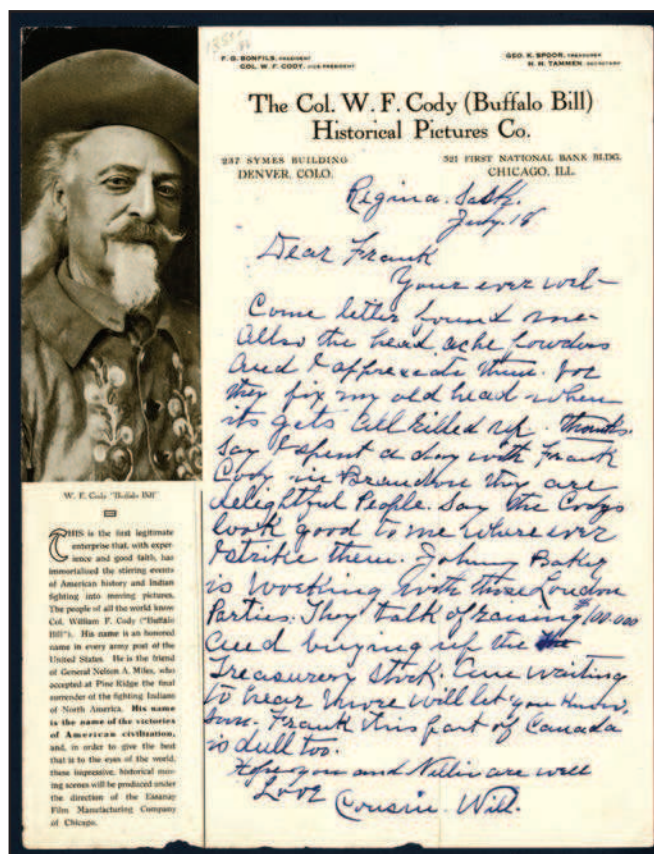 F. G. BONFILS, PRESIDENT
COL. W. F. CODY, VICE-PRESIDENT
GEO. K. SPOOR, TREASURER
H. H. TAMMEN, SECRETARY
The Col. W. F. Cody (Buffalo Bill)
Historical Pictures Co.
237 SYMES BUILDING
DENVER, COLO.
521 FIRST NATIONAL BANK BLDG.
CHICAGO, ILL.
Regina. Sask.
July. 18
Dear Frank
Your ever wel-
Come letter found me-
Allso the head ache powders
and I appreciate them. for
they fix my old head when
its gets all filled up. thanks.
Say I spent a day with Frank
Cody in Brandon they are
delightful People. Say the Codys
look good to me where ever
I strike them. Johnny Baker
is working with those London
Parties. They talk of raising $100.000
and buying up the
Treasurery stock. Am waiting
to hear more will let you know.
Frank this part of Canada
is dull too.
Hope you and Nellie are well
Love Cousin. Will.
W. F. Cody "Buffalo Bill"
THIS is the first legitimate
enterprise that, with exper-
ience and good faith, has
immortalized the stirring events
of American history and Indian
fighting into moving pictures.
The people of all the world know
Col. William F. Cody ("Buffalo
Bill"). His name is an honored
name in every army post of the
United States. He is the friend
of General Nelson A. Miles, who
accepted at Pine Ridge the final
surrender of the fighting Indians
of North America. His name
is the name of the victories
of American civilization,
and, in order to give the best
that is to the eyes of the world,
these impressive, historical mov-
ing scenes will be produced under
the direction of the Essanay
Film Manufacturing Company
of Chicago.